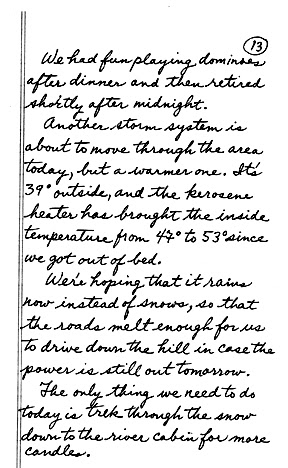 13
We had fun playing dominoes
after dinner and then retired
shortly after midnight.
Another storm system is
about to move through the area
today, but a warmer one. It's
39° outside, and the kerosene
heater has brought the inside
temperature from 47° to 53° since
we got out of bed.
We're hoping that it rains
now instead of snows, so that
the roads melt enough for us
to drive down the hill in case the
power is still out tomorrow.
The only thing we need to do
today is trek through the snow
down to the river cabin for more
candles.